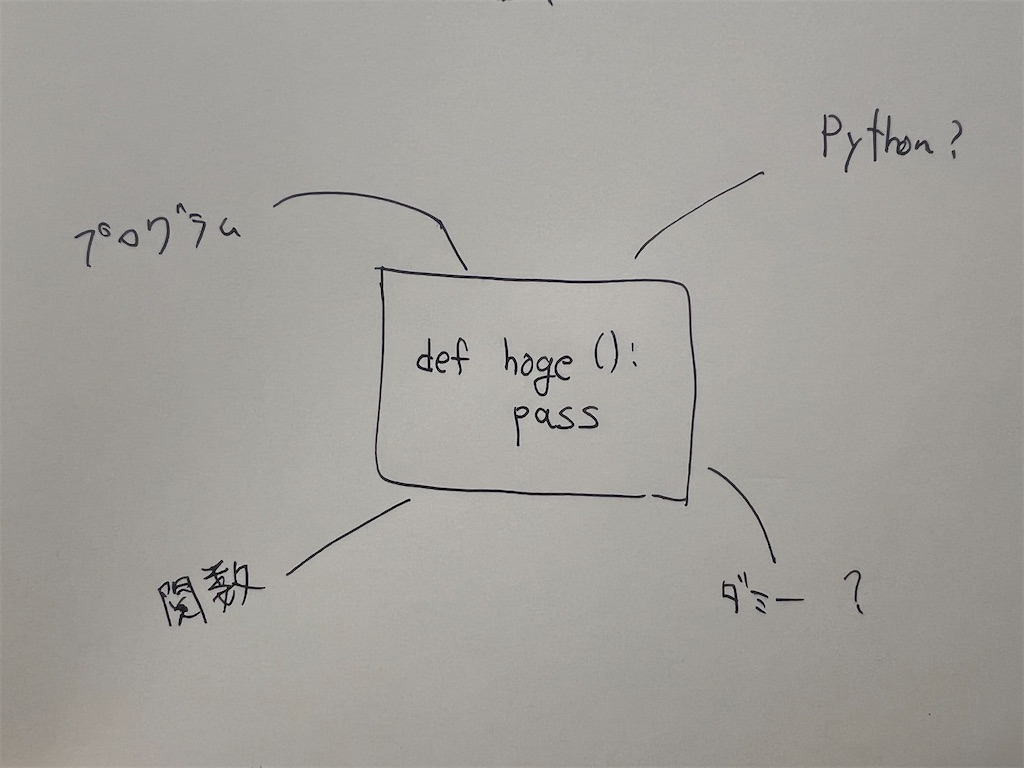 Python?
プログラム
def hoge():
pass
関数
ダミー ?